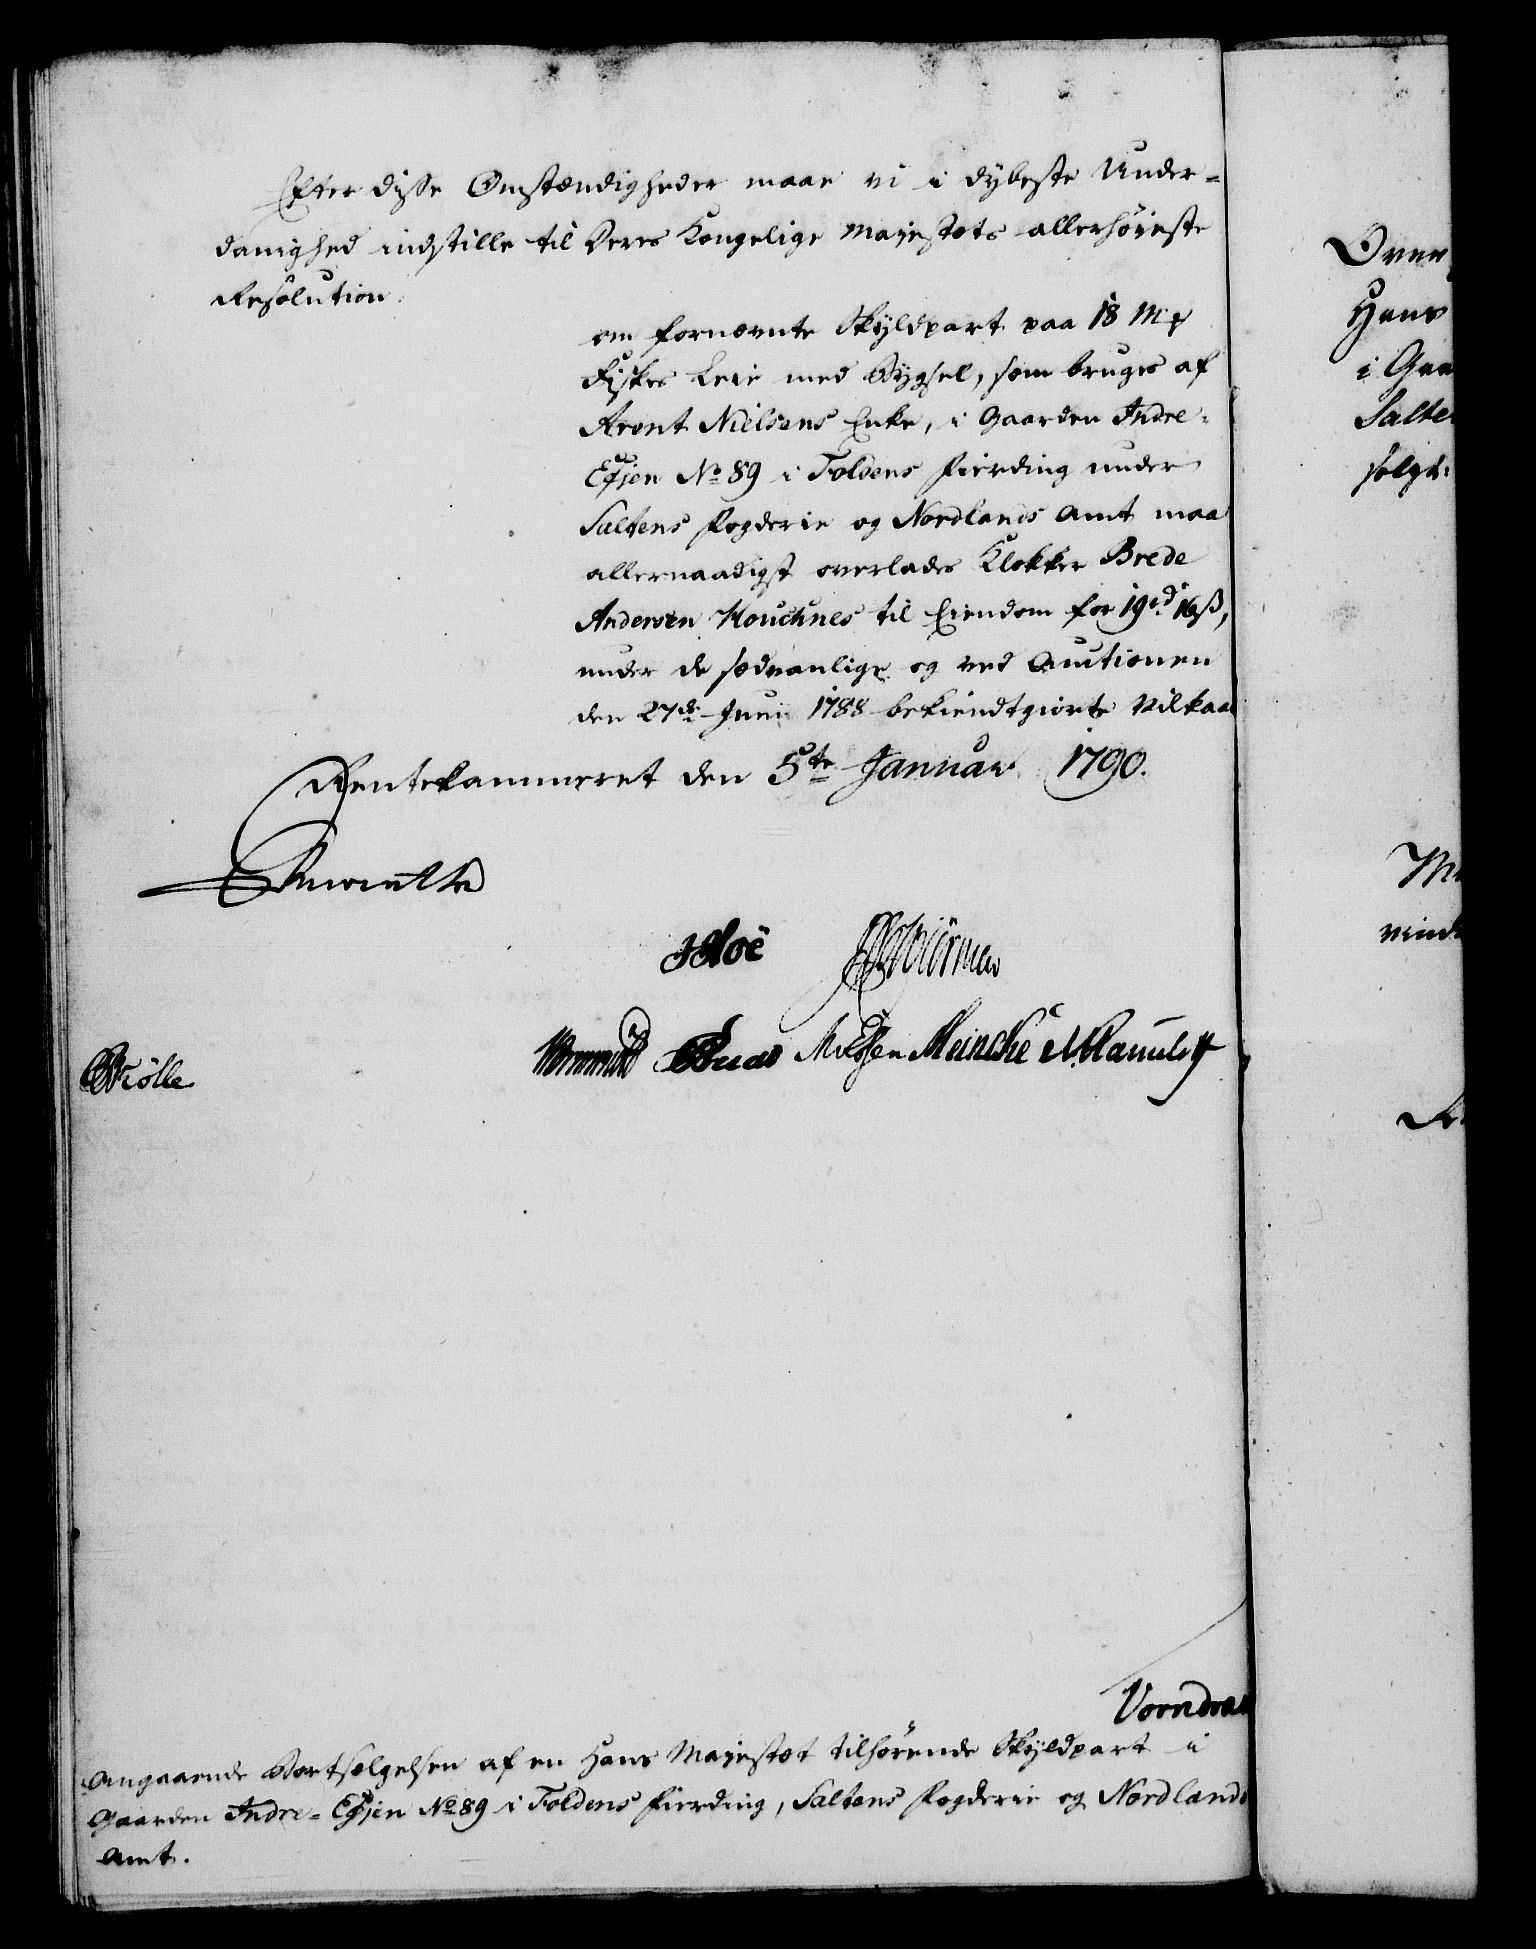 Efter disse Omstændigheder maae vi i dybeste Under-
danighed indstille til Deres Kongelige Majestæts allerhöieste
Resolution
om fornævnte Skyldpart paa 18 Mk
Fiskes Leie med Bygsel, som bruges af
Aront Nielsens Enke, i Gaarden Indre-
Efjen No 89 i Foldens Fierding under
Saltens Fogderie og Nordlands Amt maa
allernaadigst overlades Klokker Brede
Andersen Kouchnes til Eiendom for 19 rd 16 ß,
under de sædvanlige og ved Auctionen
den 27de Juni 1788 bekiendtgiorte Vilkaar
Rentekammeret den 5te Januar 1790.
Hoë
Meincke
Vorndran
Angaaende Bortsælgelsen af en Hans Majestæt tilhörende Skyldpart i
Gaarden Indre-Efjen No 89 i Foldens Fierding, Saltens Fogderie og Nordlands
Amt.
Hans
i Gaa
Salte